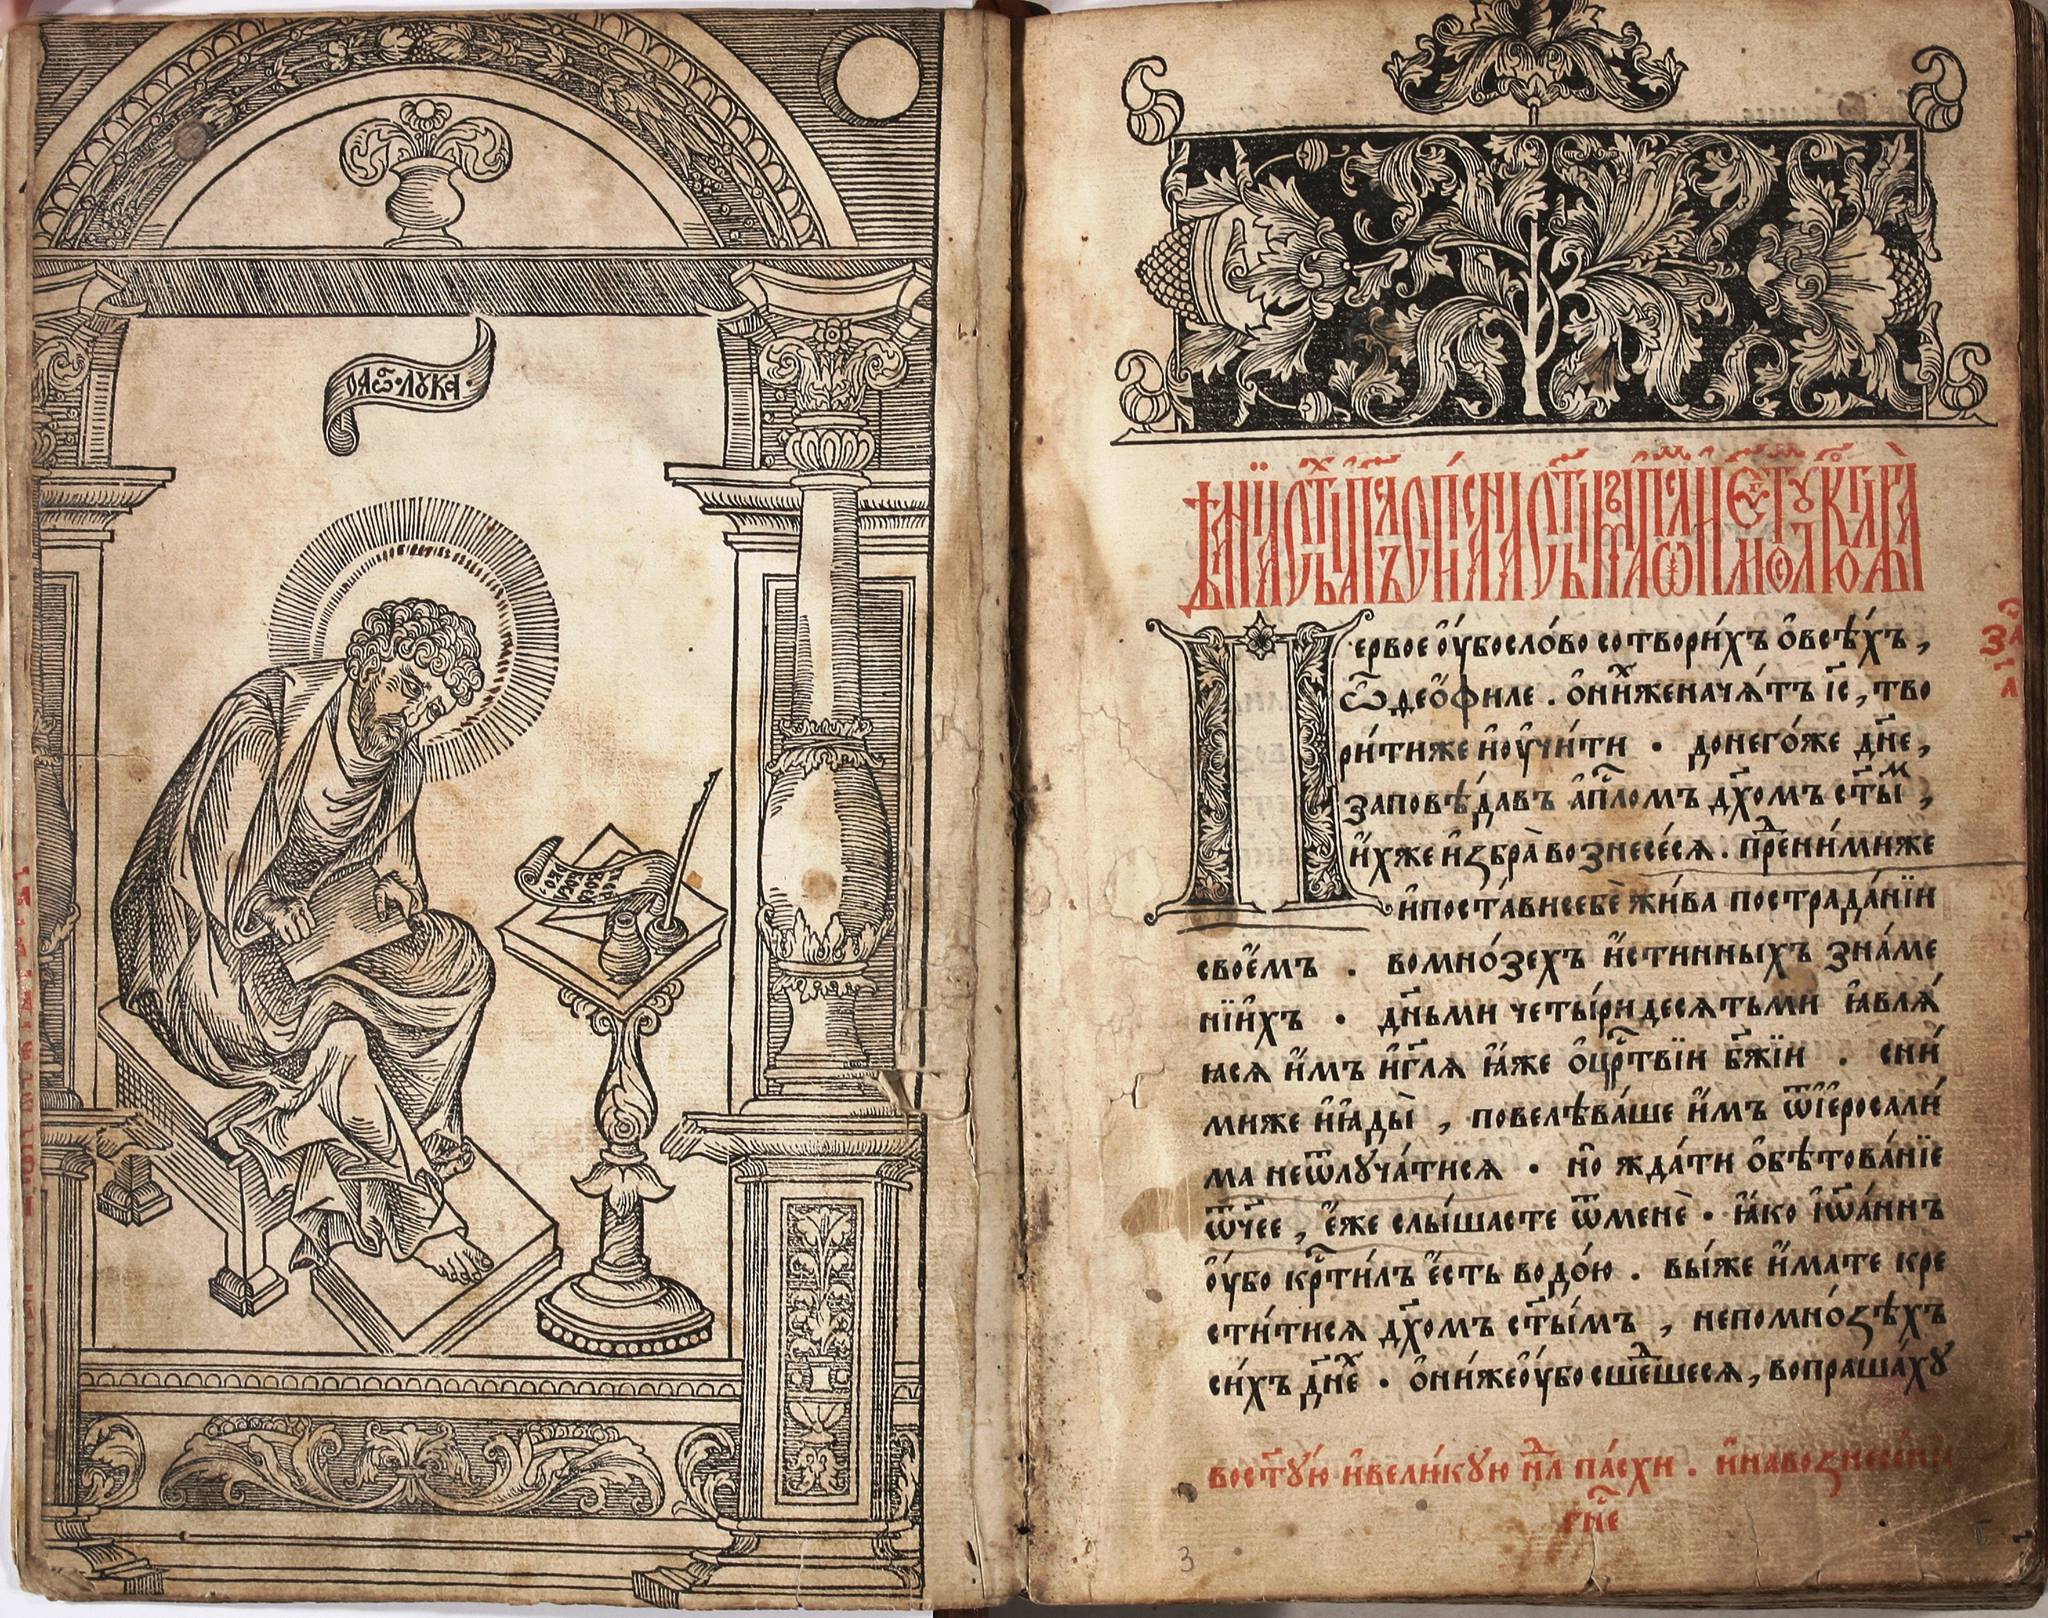 ОА҃Ѿ·ЛꙊКА·
ервое ᲂу҆бо сло́во сотвори́хъ ѻ҆ всѣ́хъ,
ѽ ѳео́филе. ѻ҆ ни́хже нача́тъ і҃с, тво
ри́тиже и҆ ᲂу҆чи́ти . до него́же дн҃е,
заповѣ́давъ а҆пⷭ҇ломъ дх҃омъ ст҃ыⷨ,
и҆́хже и҆збра̀ вознесе́сѧ. преⷣ ни́миже
и҆ поста́ви себѐ жи́ва по страда́нїи
свое́мъ . во мно́зехъ и҆́стинныхъ зна́ме
нїи҆хъ . дн҃ьми четы́ридесѧтьми ꙗ҆влѧ́
ꙗсѧ и҆̀мъ и҆ гл҃ѧ ꙗ҆̀же ѻ҆ црⷭ҇твїи бж҃їи . сни́
миже и҆ ꙗ҆ды̀ , повелѣва́ше и҆̀мъ ѿ і҆еросали́
ма не ѿлꙋча́тисѧ . но жда́ти ѻ҆бѣтова́нїе
ѻ҆́ч҃ее , є҆́же слы́шасте ѿ менѐ . ꙗ҆́ко і҆ѡа́ннъ
ᲂу҆́бо крⷭ҇ти́лъ є҆́сть водо́ю . вы́же и҆́мате кре
сти́тисѧ дх҃омъ ст҃ы́мъ , не по мно́зѣхъ
си́хъ дн҃еⷯ . ѻ҆ни́же ᲂу҆́бо сше́ⷣшесѧ, вопраша́хꙋ
во ст҃ꙋ́ю и҆ вели́кꙋю нⷣ҇лю па́схи . и҆ на вознесе́нїе
гн҃е
3